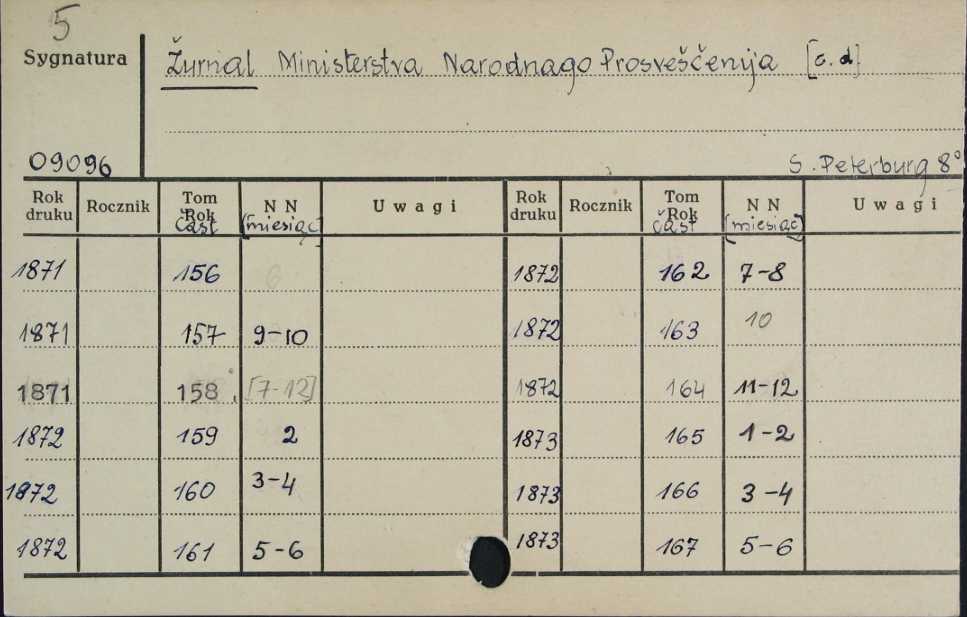 5
Sygnatura
Žurnal Ministerstva Narodnago Prosveščenija [c.d]
09096
S. Peterburg 8°
Rok druku Rocznik Tom Rok čast' N N [miesiąc] Uwagi Rok druku Rocznik Tom Rok čast' N N [miesiąc] Uwagi
1871 156 1872 162 7-8
1871 157 9-10 1872 163 10
1871 158 [7-12] 1872 164 11-12
1872 159 2 1873 165 1-2
1872 160 3-4 1873 166 3-4
1872 161 5-6 1873 167 5-6